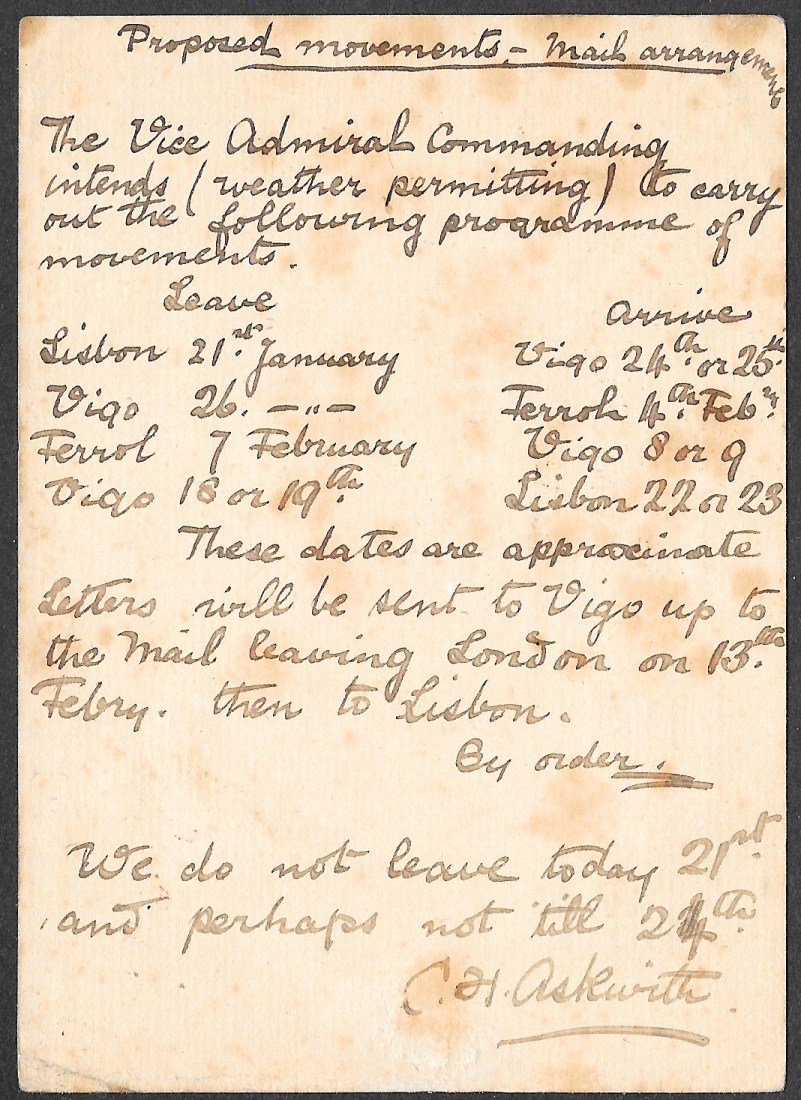 Proposed movements - Mail arrangements
The Vice Admiral Commanding
intends (weather permitting) to carry
out the following programme of
movements.
Leave Arrive
Lisbon 21st. January Vigo 24th. or 25th.
Vigo 26. — " — Ferrol 4th. Febry.
Ferrol 7 February Vigo 8 or 9
Vigo 18 or 19th. Lisbon 22 or 23
These dates are approximate
Letters will be sent to Vigo up to
the Mail leaving London on 13th.
Febry. then to Lisbon.
By order.
We do not leave today 21st.
and perhaps not till 24th
C. H. Askwith.